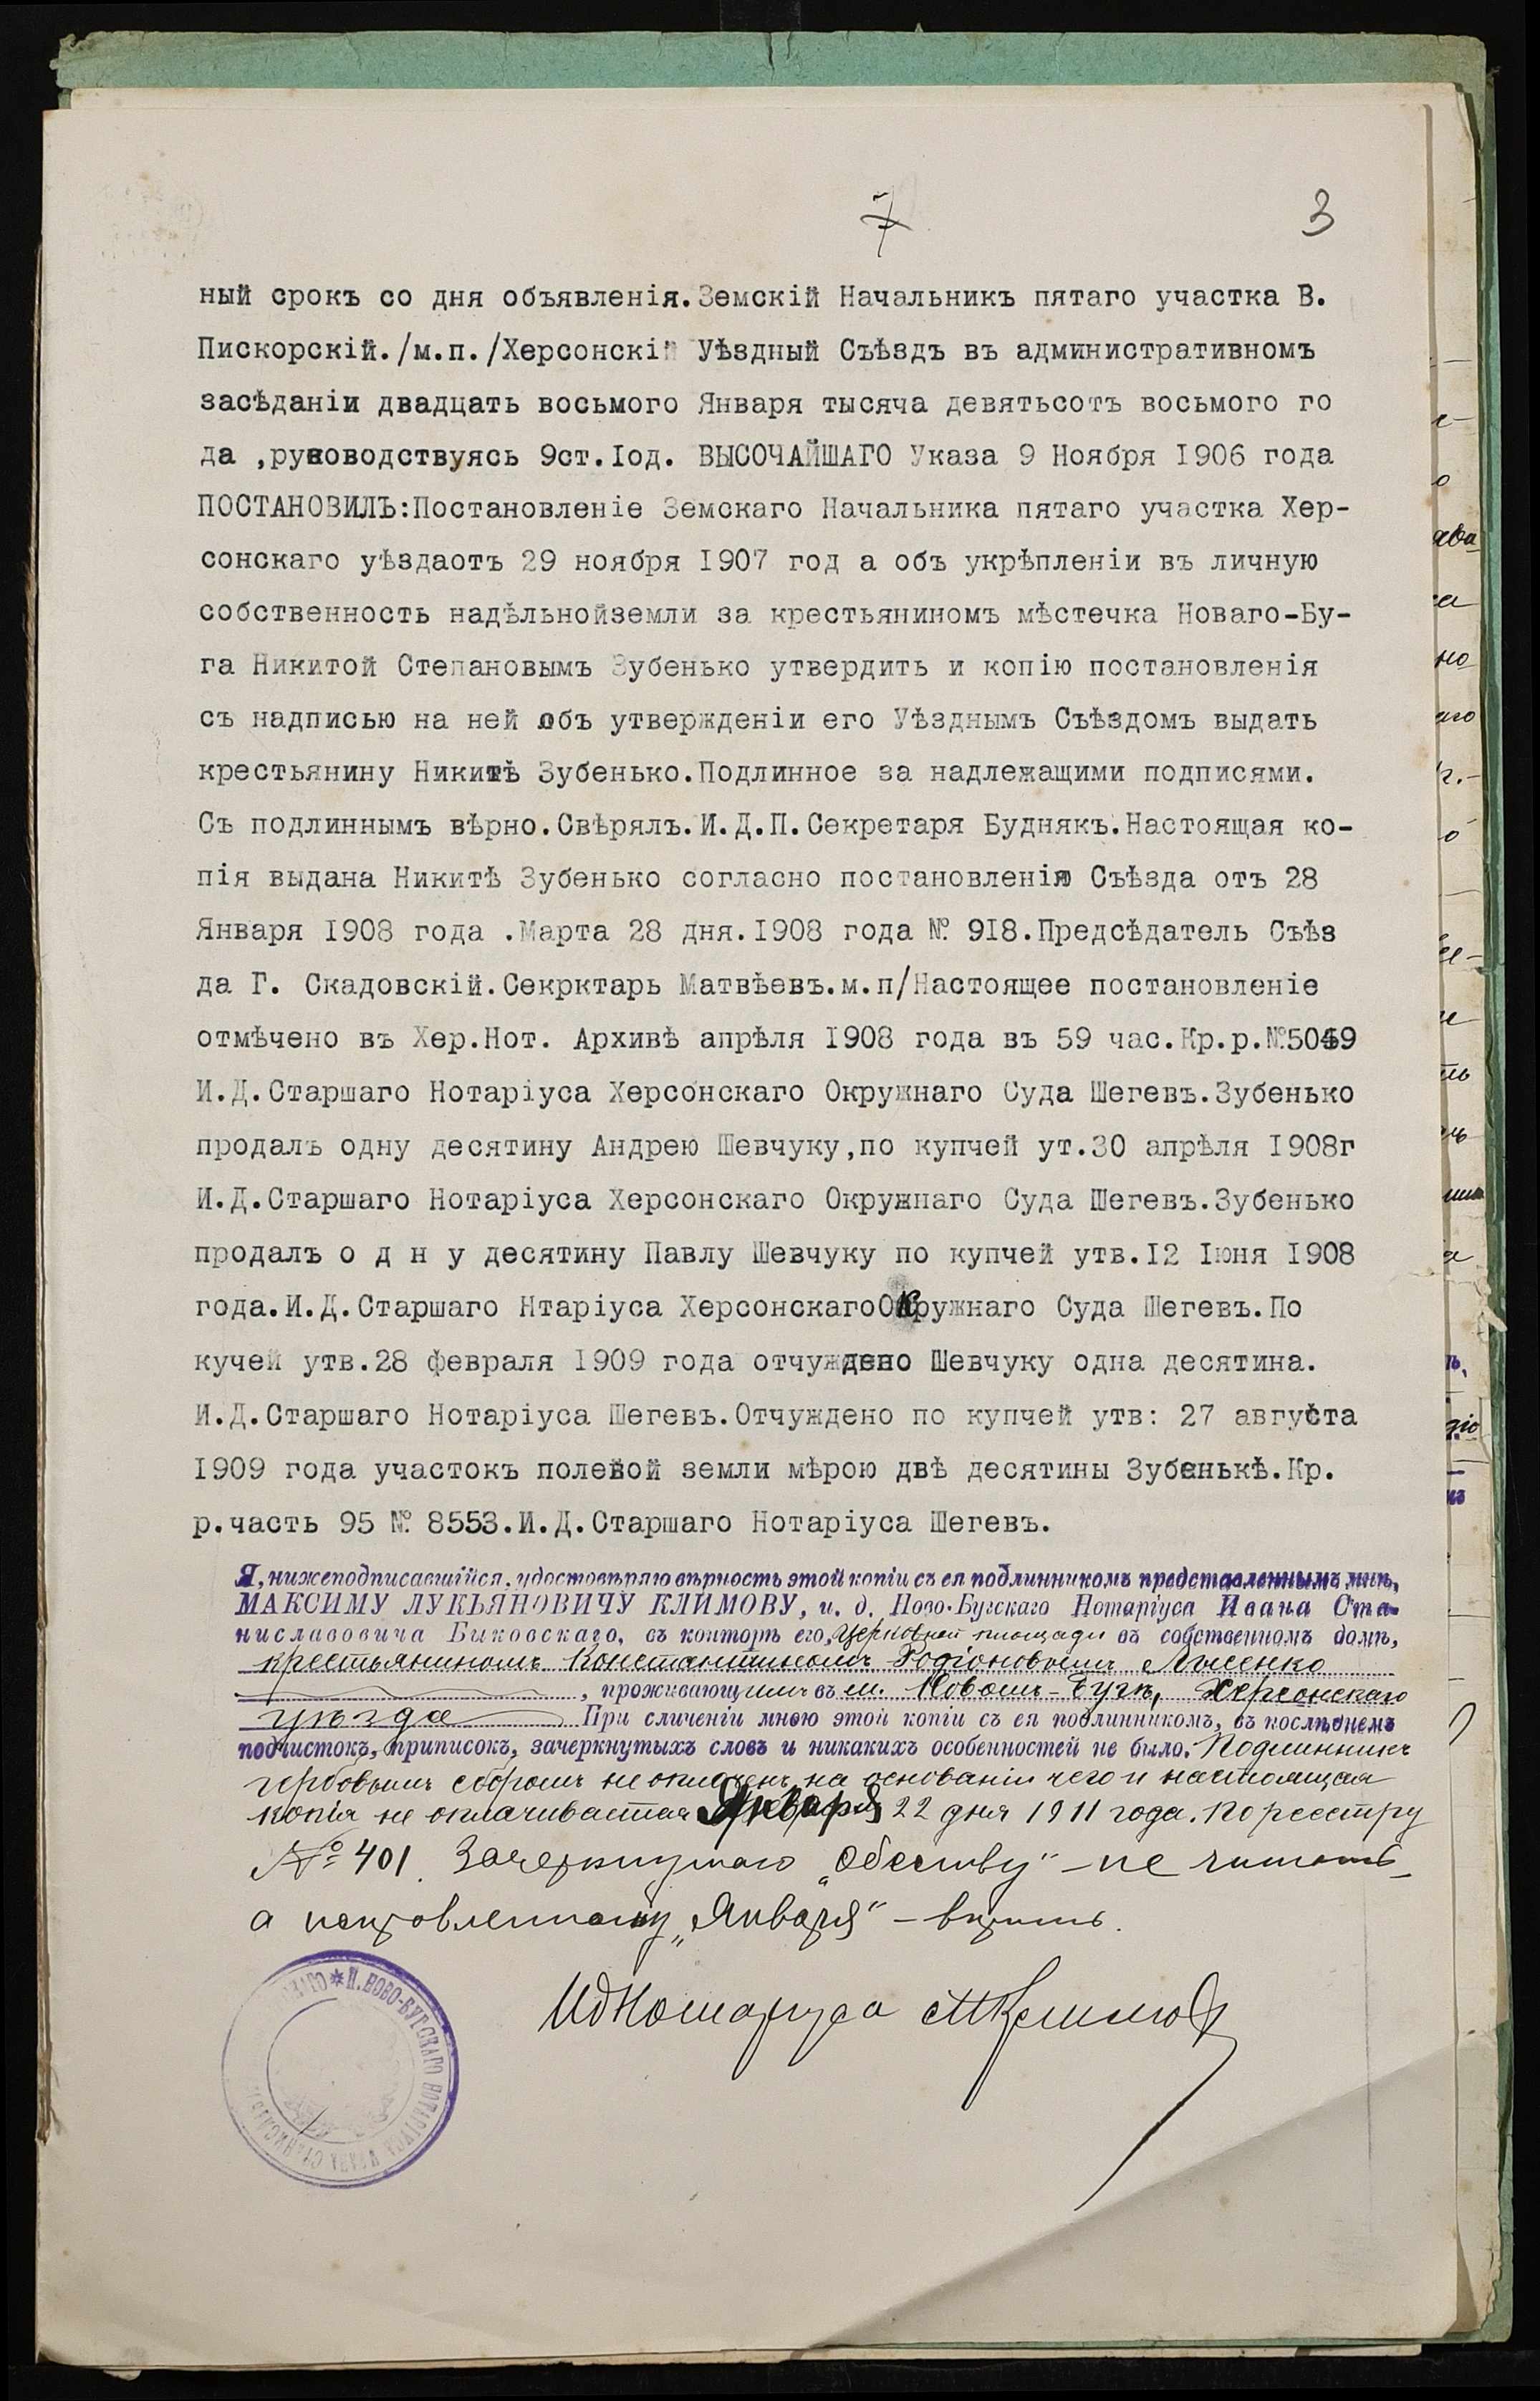 7
3
ный срокъ со дня объявленія.Земскій Начальникъ пятаго участка В.
Пискорскій./м.п./Херсонскій Уѣздный Съѣздъ въ административномъ
засѣданіи двадцать восьмого Января тысяча девятьсотъ восьмого го
да ,руководствуясь 9ст.Iод. ВЫСОЧАЙШАГО Указа 9 Ноября I906 года
ПОСТАНОВИЛЪ:Постановленіе Земскаго Начальника пятаго участка Хер-
сонскаго уѣздаотъ 29 ноября I907 год а объ укрѣпленіи въ личную
собственность надѣльнойземли за крестьяниномъ мѣстечка Новаго-Бу-
га Никитой Степановымъ Зубенько утвердить и копію постановленія
съ надписью на ней объ утвержденіи его Уѣзднымъ Съѣздомъ выдать
крестьянину Никитѣ Зубенько.Подлинное за надлежащими подписями.
Съ подлиннымъ вѣрно.Свѣрялъ.И.Д.П.Секретаря Будnякъ.Настоящая ко-
пія выдана Никитѣ Зубенько согласно постановленію Съѣзда отъ 28
Января I908 года .Марта 28 дня.I908 года № 9I8.Предсѣдатель Съѣз
да Г. Скадовскій.Секрктарь Матвѣевъ.м.п/Настоящее постановленіе
отмѣчено въ Хер.Нот. Архивѣ апрѣля I908 года въ 59 час.Кр.р.№5049
И.Д.Старшаго Нотаріуса Херсонскаго Окружнаго Суда Шегевъ.Зубенько
продалъ одну десятину Андрею Шевчуку,по купчей ут.30 апрѣля I908г
И.Д.Старшаго Нотаріуса Херсонскаго Окружнаго Суда Шегевъ.Зубенько
продалъ о д н у десятину Павлу Шевчуку по купчей утв.I2 Iюня I908
года.И.Д.Старшаго Нтаріуса ХерсонскагоОкружнаго Суда Шегевъ.По
кучей утв.28 февраля I909 года отчуждено Шевчуку одна десятина.
И.Д.Старшаго Нотаріуса Шегевъ.Отчуждено по купчей утв: 27 августа
I909 года участокъ полевой земли мѣрою двѣ десятины Зубенькѣ.Кр.
р.часть 95 № 8553.И.Д.Старшаго Нотаріуса Шегевъ.
Я, нижеподписавшійся, удостовѣряю вѣрность этой копіи съ ея подлинникомъ представленнымъ мнѣ,
МАКСИМУ ЛУКЬЯНОВИЧУ КЛИМОВУ, и. д. Ново-Бугскаго Нотаріуса Ивана Ста-
ниславовича Быковскаго, въ конторѣ его, Церковной площади въ собственномъ домѣ,
крестьяниномъ Константиномъ Родіоновымъ Лысенко
, проживающимъ въ м. Новомъ-Бугѣ, Херсонскаго
уѣзда При сличеніи мною этой копіи съ ея подлинникомъ, въ послѣднемъ
подчистокъ, приписокъ, зачеркнутыхъ словъ и никакихъ особенностей не было. Подлинникъ
гербовымъ сборомъ не оплаченъ, на основаніи чего и настоящая
копія не оплачивается Января 22 дня 1911 года. По реестру
№ 401. Зачеркнутаго не читать
а исправленному „Января“ - вѣрить.
ИдНотаріуса МКлимов
И. НОВО-БУГСКАГО НОТАРІУСА ИВАНА СТАНИСЛ